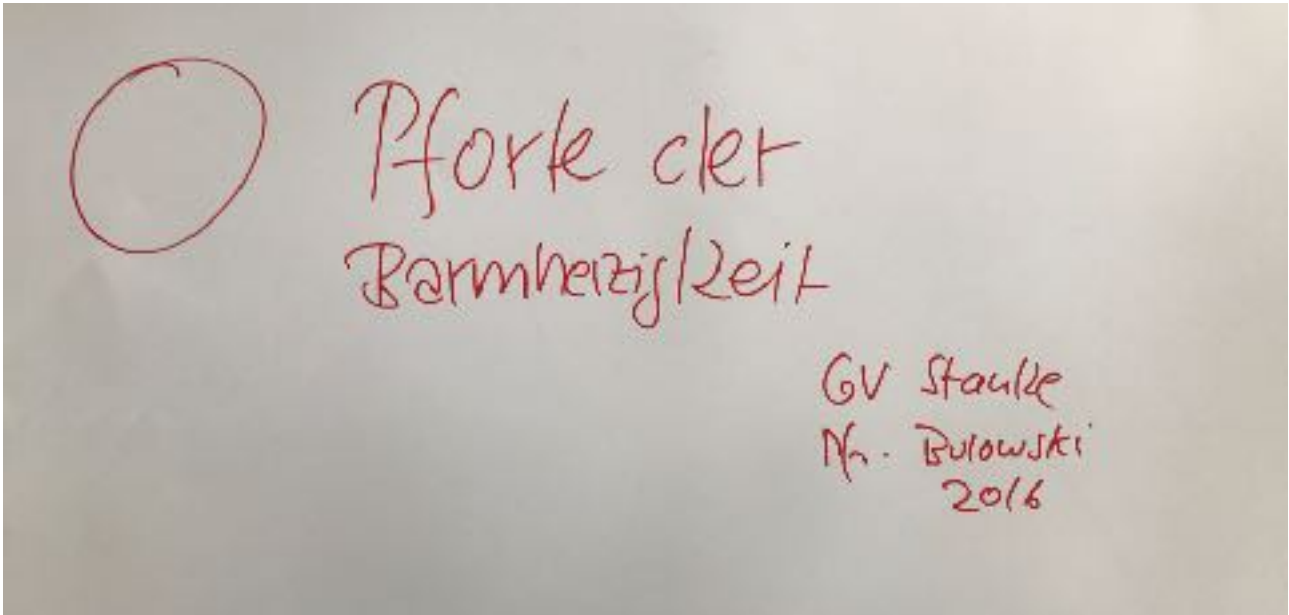 Pforte der
Barmherzigkeit
GV Stanke
Pfr. Bulowski
2016